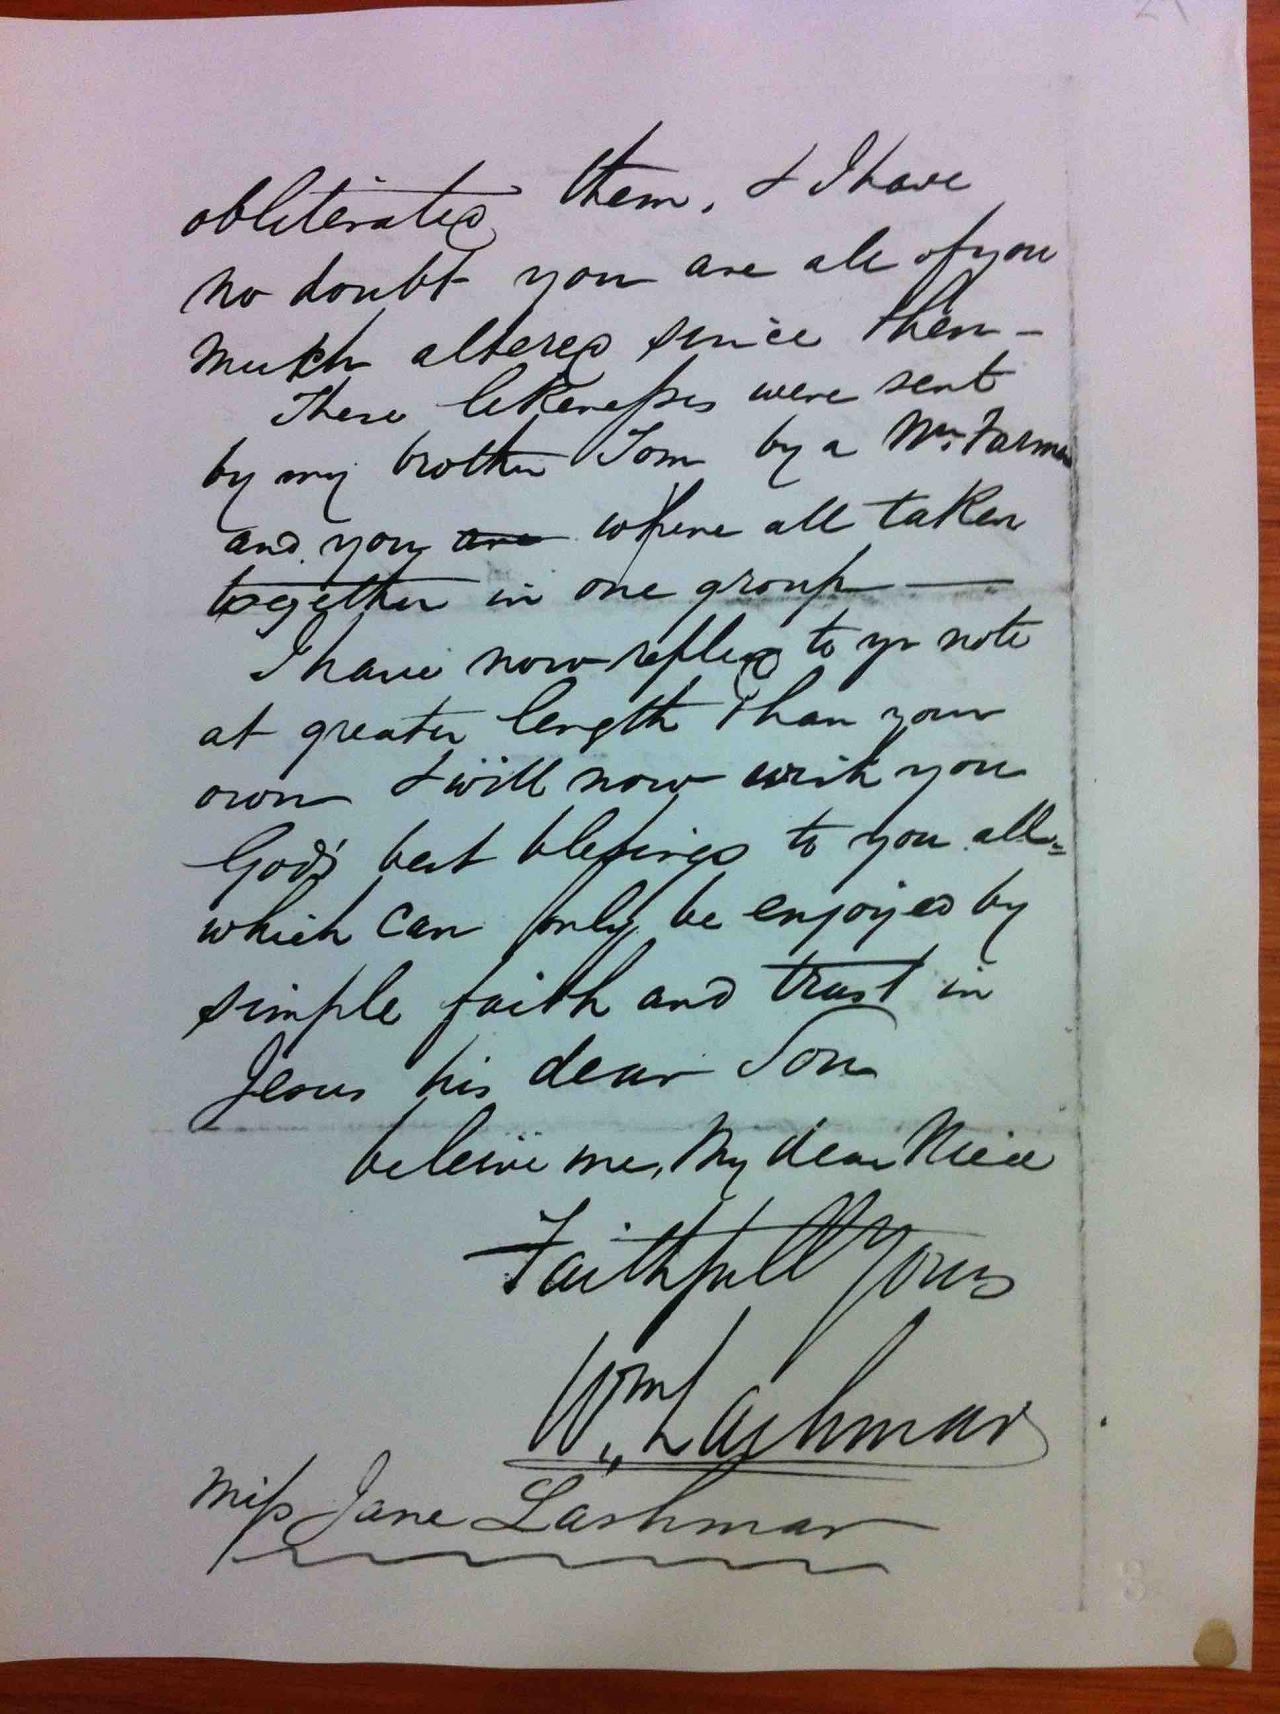 obliterated them, & I have
no doubt you are all of you
much altered since then -
These likenesses were sent
by my brother Tom by a Mr. Farmer
and you are where all taken
together in one group —
I have now replied to yr note
at greater length than your
own & will now wish you
God's best blessings to you all
which can only be enjoyed by
simple faith and trust in
Jesus his dear Son
beleive me, My dear Niece
Faithfull Yours
Wm. Lashmar
Miss Jane Lashmar